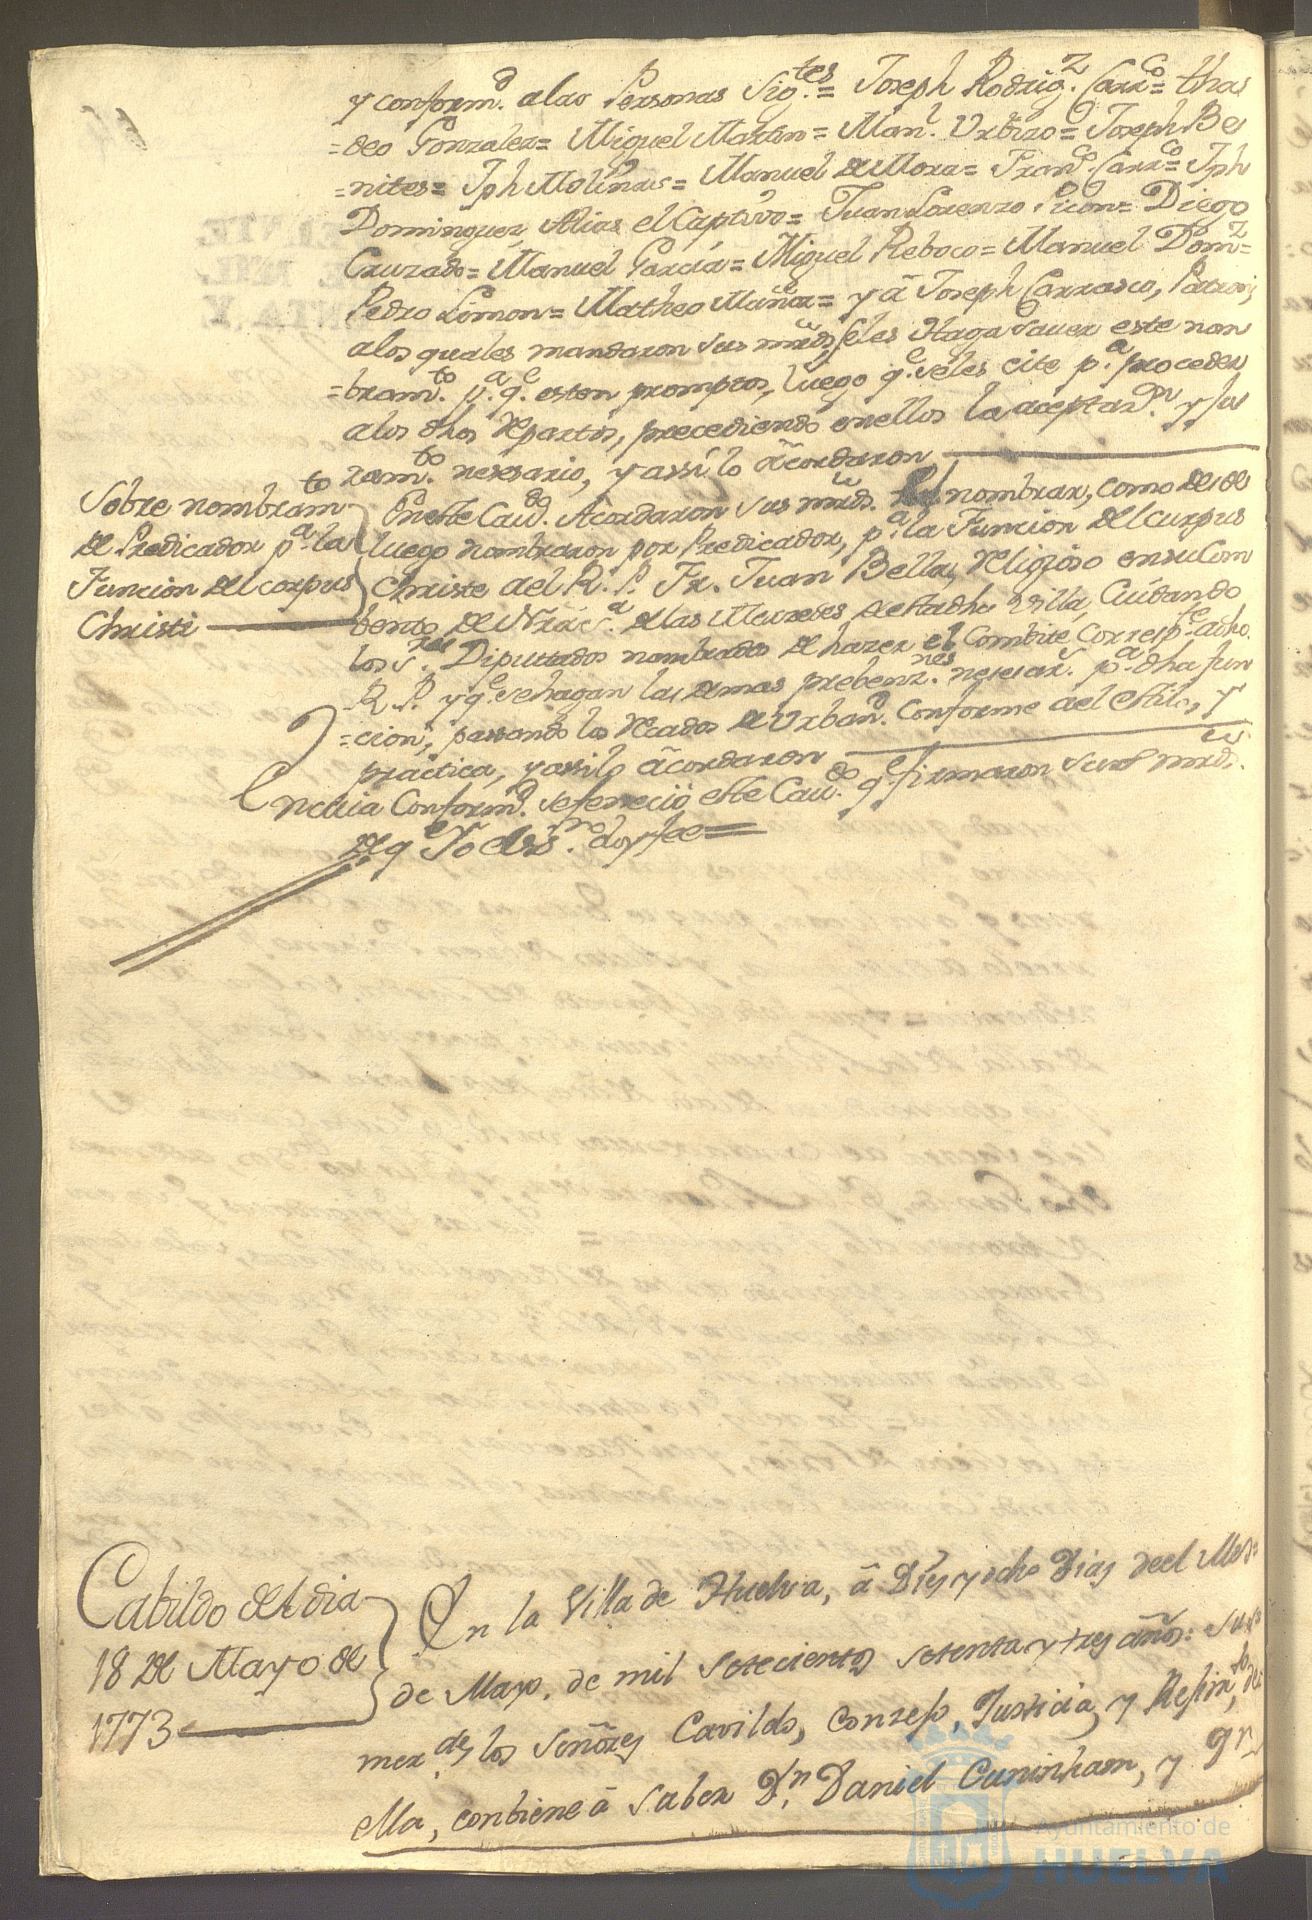 y conform.d alas Personas Sig.tes= Joseph Rodrig.z Carr.co= thas
=deo Gonzalez= Miguel Martin= Man.l Urbizo= Joseph Be
=nites= Jph Molina= Manuel de Mora= Fran.co Carr.co= Jph
Dominguez, Alias el Captivo= Juan Lorenzo, Picon= Diego
Cruzado= Manuel Garcia= Miguel Reboco= Manuel Dom.z=
Pedro Limon= Matheo= y â Joseph Carrasco, Patron
alos quales mandaron sus mrds, seles Haga Saver este nom
=bram.to p.a q.e esten promptos, luego q.e seles cite p.a proceder
alos dhos Repartos, precediendo enellos la aceptaz.n y Ju
ram.to nesesario, y assi lo âcordaron
Sobre nombram.to
de Predicador p.a la
Funcion del corpus
Christi
En este Cav.do Acordaron sus mrds. nombrar, como desde
luego nombraron por Predicador, p.a la Funcion del Curpus
Christe ael R. P. Fr. Juan Bella, Religioso ensu Com
bento de Ntra S.a delas Mercedes de esta dha Villa, Cuidando
los S.res Diputtados nombrados de hazer el Combite Corresp.te adho
R. P. y q.e sehagan las demas prebenz.nes nesesar.s p.a dha fun
=cion, passando los Recados de Urban.d Conforme ael estilo, y
practica, y assi lo âcordaron
En cuia Conform.d sefenecio este Cav.do q.e firmaron sus mrds.
de q.e Yo el Ess.no doy fee=
Cabildo del dia
18 de Mayo de
1773
En la Villa de Huelva, â Dies y ocho Dias deel Mes
de Mayo, de mil setecientos setenta y tres años: sus
merz.des los Señores Cavildo, Conzejo, Justicia, y Rejim.to de
ella, combiene â saber D.n Daniel Cuninham, y
Ayuntamiento de
HUELVA